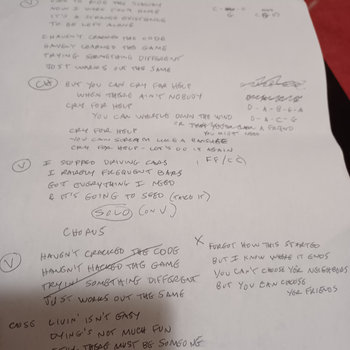 USED TO RIDE THE SUBWAY
NOW I WORK FROM HOME
IT'S A STRANGE EXISTENCE
TO BE LEFT ALONE
I HAVEN'T CRACKED THE CODE
HAVEN'T LEARNED THE GAME
TRYING SOMETHING DIFFERENT
JUST WORKS OUT THE SAME
CH BUT YOU CAN CRY FOR HELP
WHEN THERE AIN'T NOBODY
CRY FOR HELP
D-A-B-G-A
YOU CAN WHISTLE DOWN THE WIND
D-A-C-G
OR A FRIEND
CRY FOR HELP
YOU MIGHT NEED
YOU CAN SCREAM LIKE A BANSHEE
CRY FOR HELP - LET'S DO IT AGAIN
V I STOPPED DRIVING CARS
FF/CC
I RARELY FREQUENT BARS
GOT EVERYTHING I NEED
& IT'S GOING TO SEED
SOLO (ON V)
CHORUS
V HAVEN'T CRACKED THE CODE
HAVEN'T HACKED THE GAME
TRYIN' SOMETHING DIFFERENT
JUST WORKS OUT THE SAME
X FORGOT HOW THIS STARTED
BUT I KNOW WHERE IT ENDS
YOU CAN'T CHOOSE YER NEIGHBORS
BUT YOU CAN CHOOSE
YER FRIENDS
CAUSE LIVIN' ISN'T EASY
DYING'S NOT MUCH FUN
THERE MUST BE SOMEONE